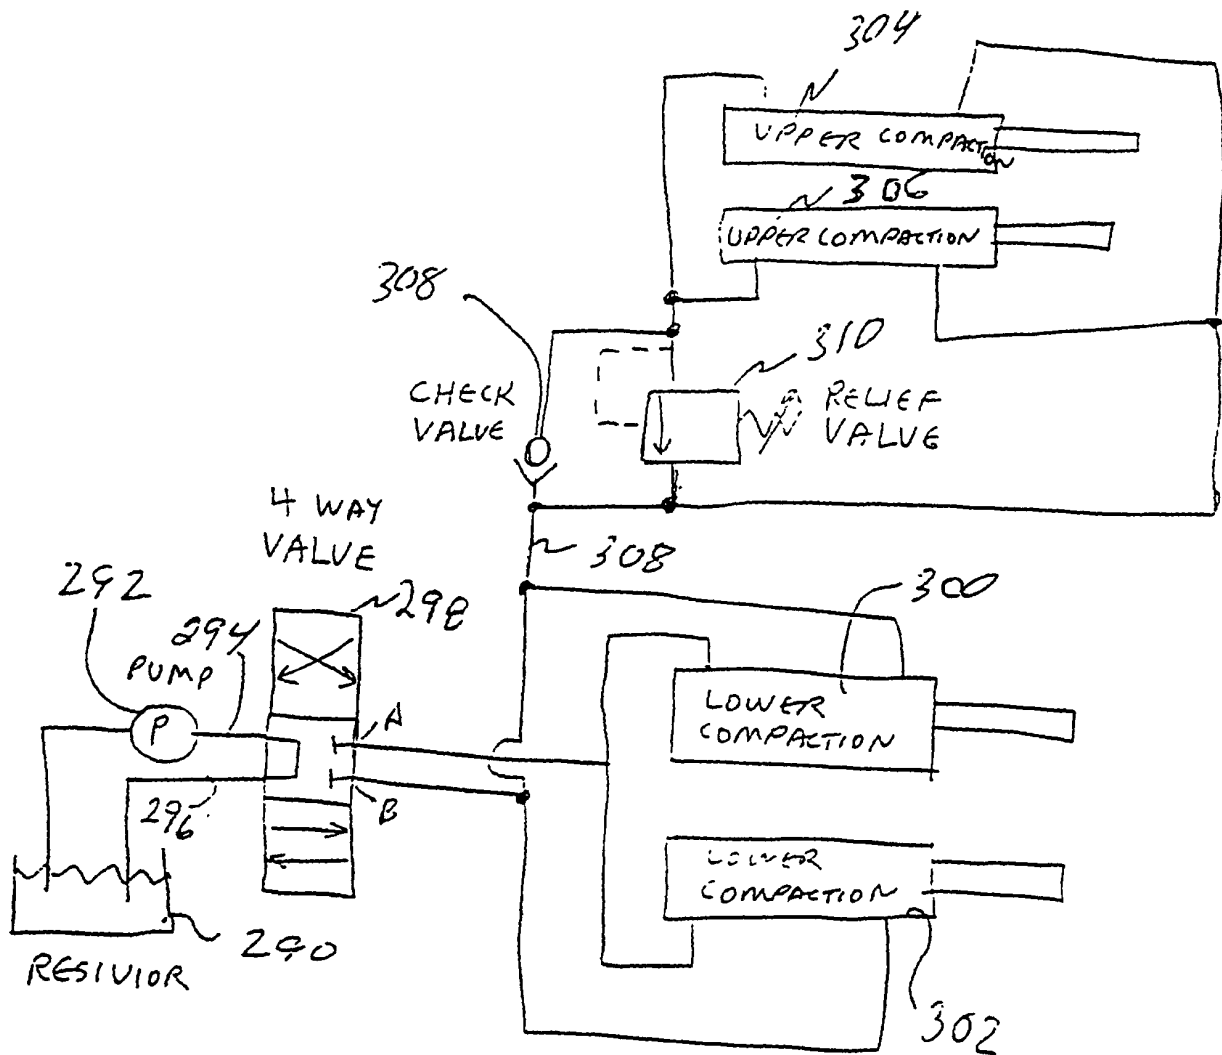 304
UPPER COMPACTION
306
UPPER COMPACTION
308
310
CHECK
VALVE
RELIEF
VALVE
4 WAY
VALVE
308
292
298
300
294
PUMP
LOWER
COMPACTION
A
P
B
296
LOWER
COMPACTION
290
RESIVIOR
302